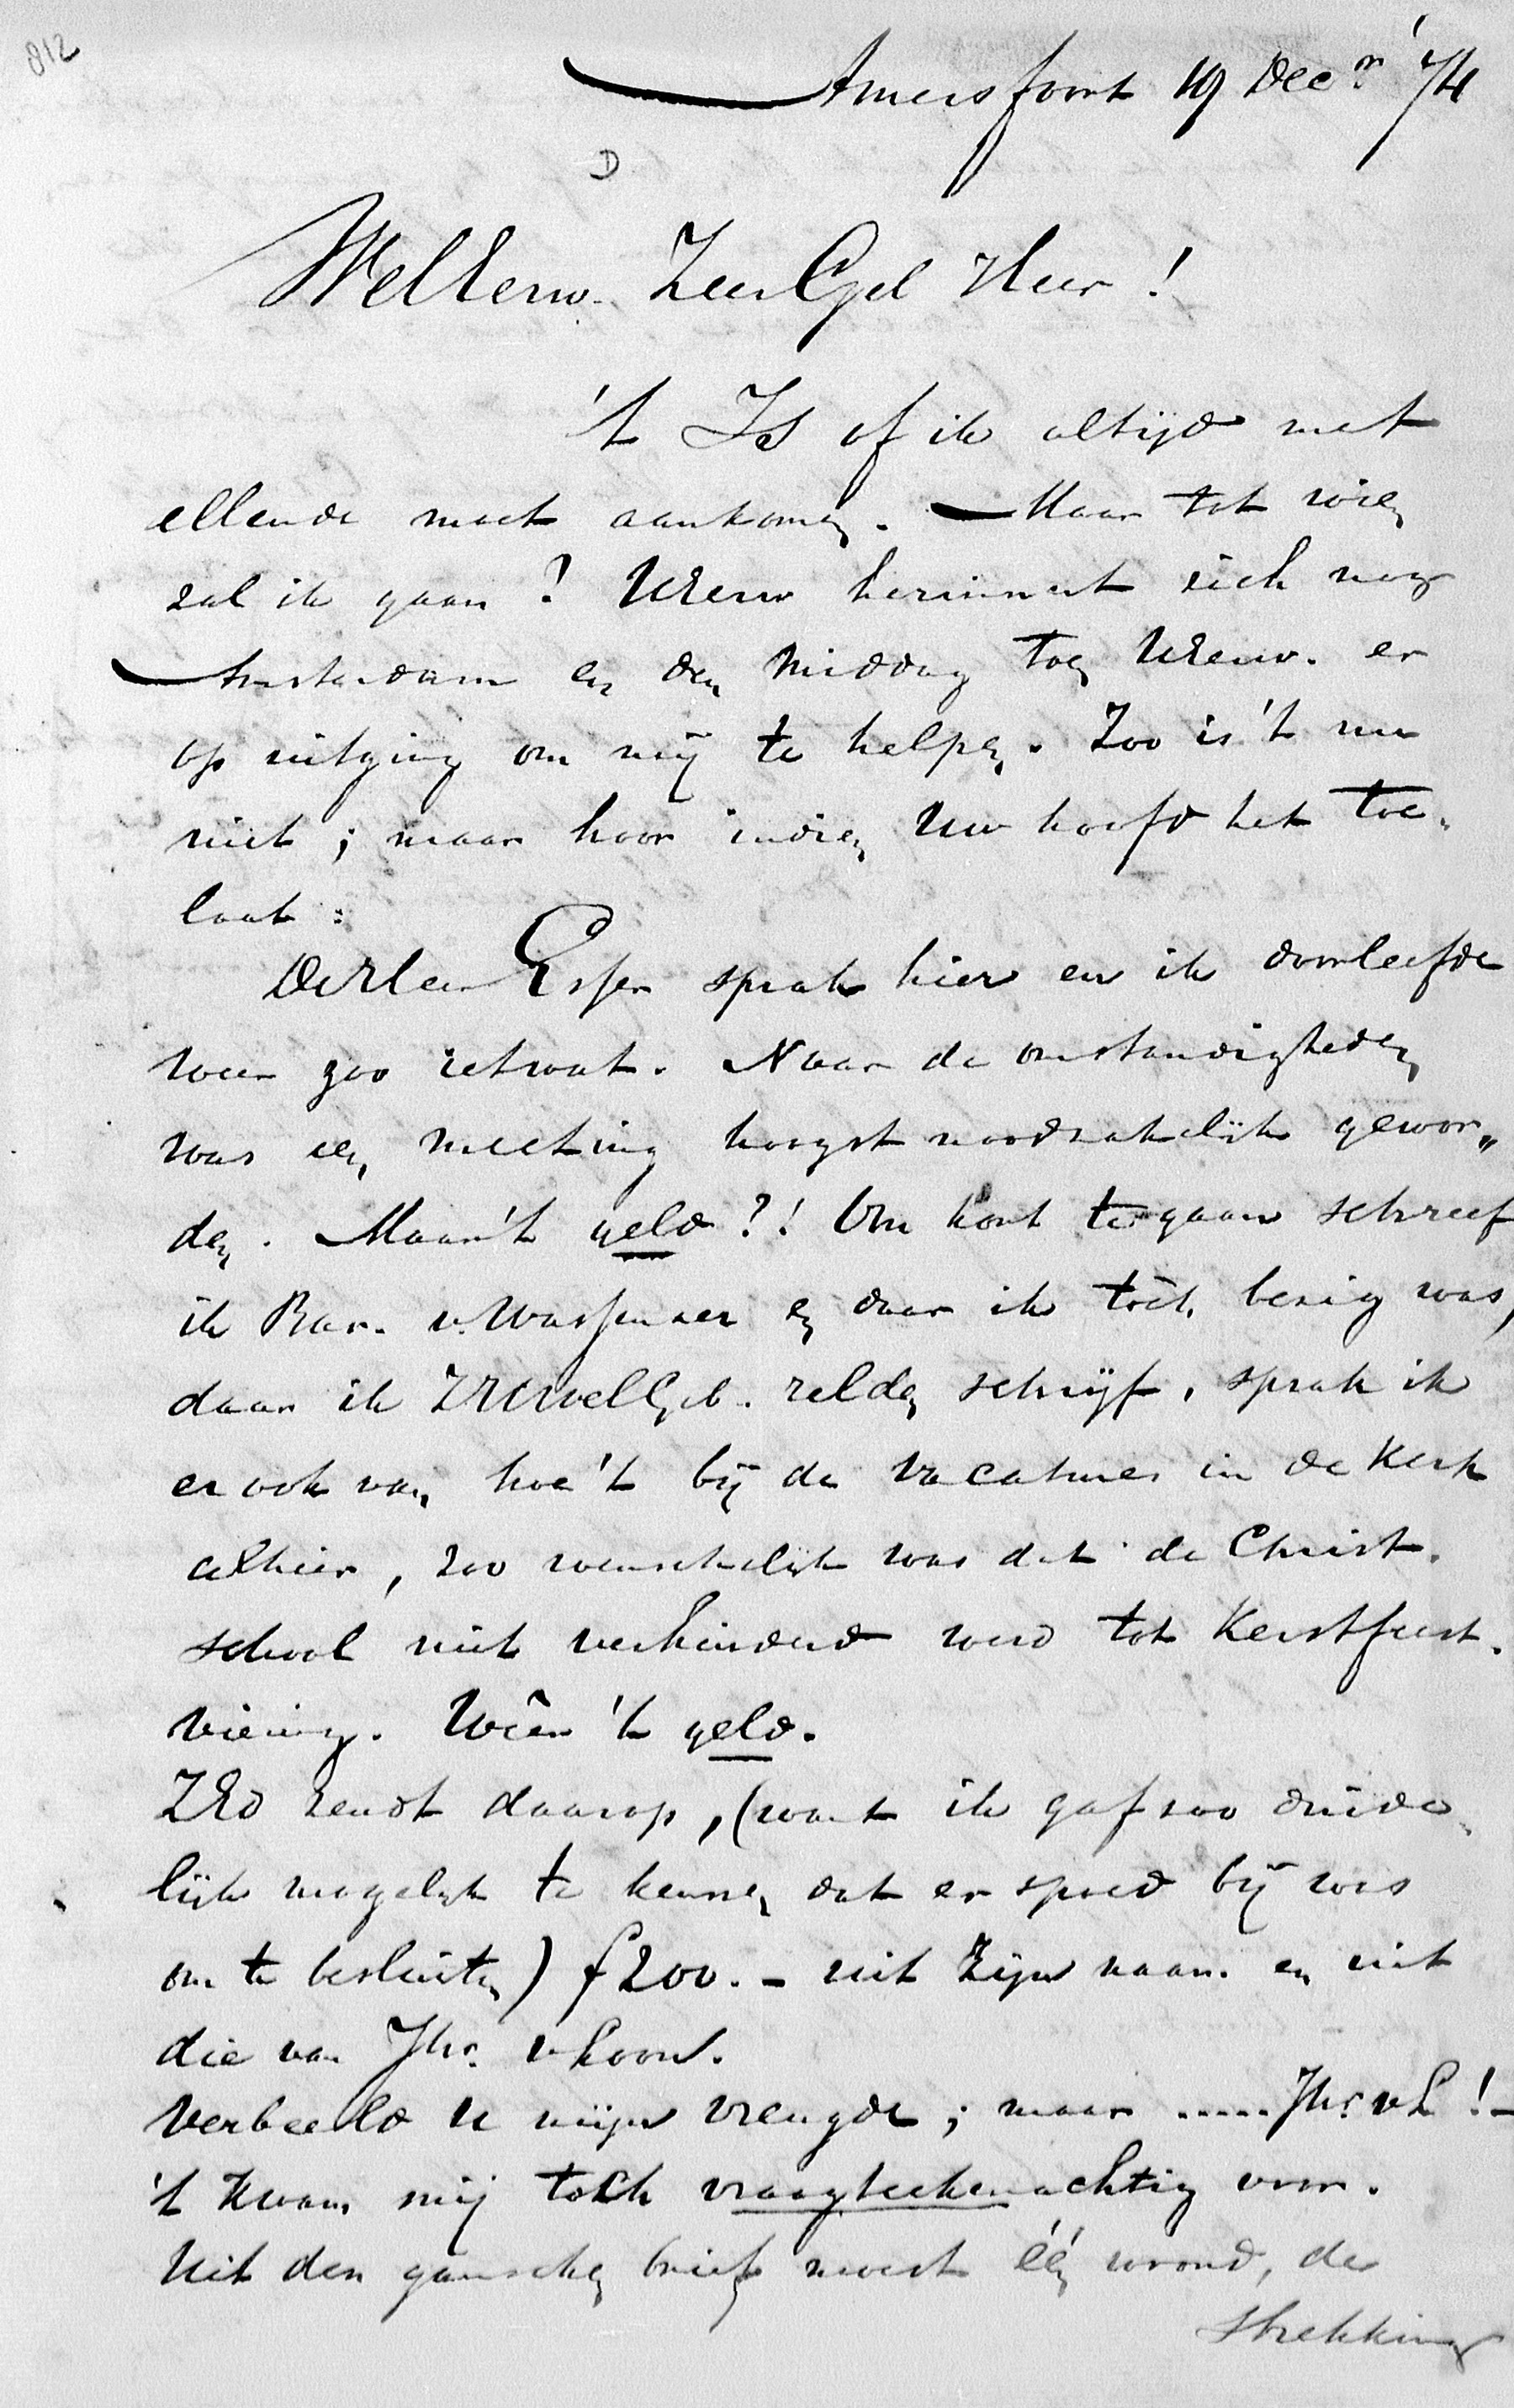 812
Amersfoort 19 Dec.r '74
D
WelEerw. ZeerGel Heer!
't Is of ik altijd met
ellende moet aankomen. Maar tot wien
zal ik gaan? UEerw herinnert zich nog
Amsterdam en den middag toen UEerw. er
op uitging om mij te helpen. Zoo is 't nu
niet; maar hoor indien Uw hoofd het toe-
laat:
De Heer Esser sprak hier en ik doorleefde
weer zoo ietwat. Naar de omstandigheden
was een meeting hoogst noodzakelijk gewor„
den. Maar 't geld?! Om kort te gaan schreef
ik Bar. v. Wassenaer en daar ik toch bezig was,
daar ik ZHWelGeb. zelden schrijf, sprak ik
er ook van hoe 't bij de vacatures in de Kerk
alhier, zoo wenschelijk was dat de Christ.
school niet verhinderd werd tot Kerstfeest-
viering. Wêer 't geld.
ZEd zendt daarop, (want ik gaf zoo duide-
lijk mogelijk te kennen dat er spoed bij was
om te besluiten) f 200.- uit Zijn naam en uit
die van Jhr. v Loon.
Verbeeld U mijn vreugde; maar ..... Jhr. v L!-
't Kwam mij toch vraagteekenachtig voor.
Uit den ganschen brief moest één woord, de
strekking